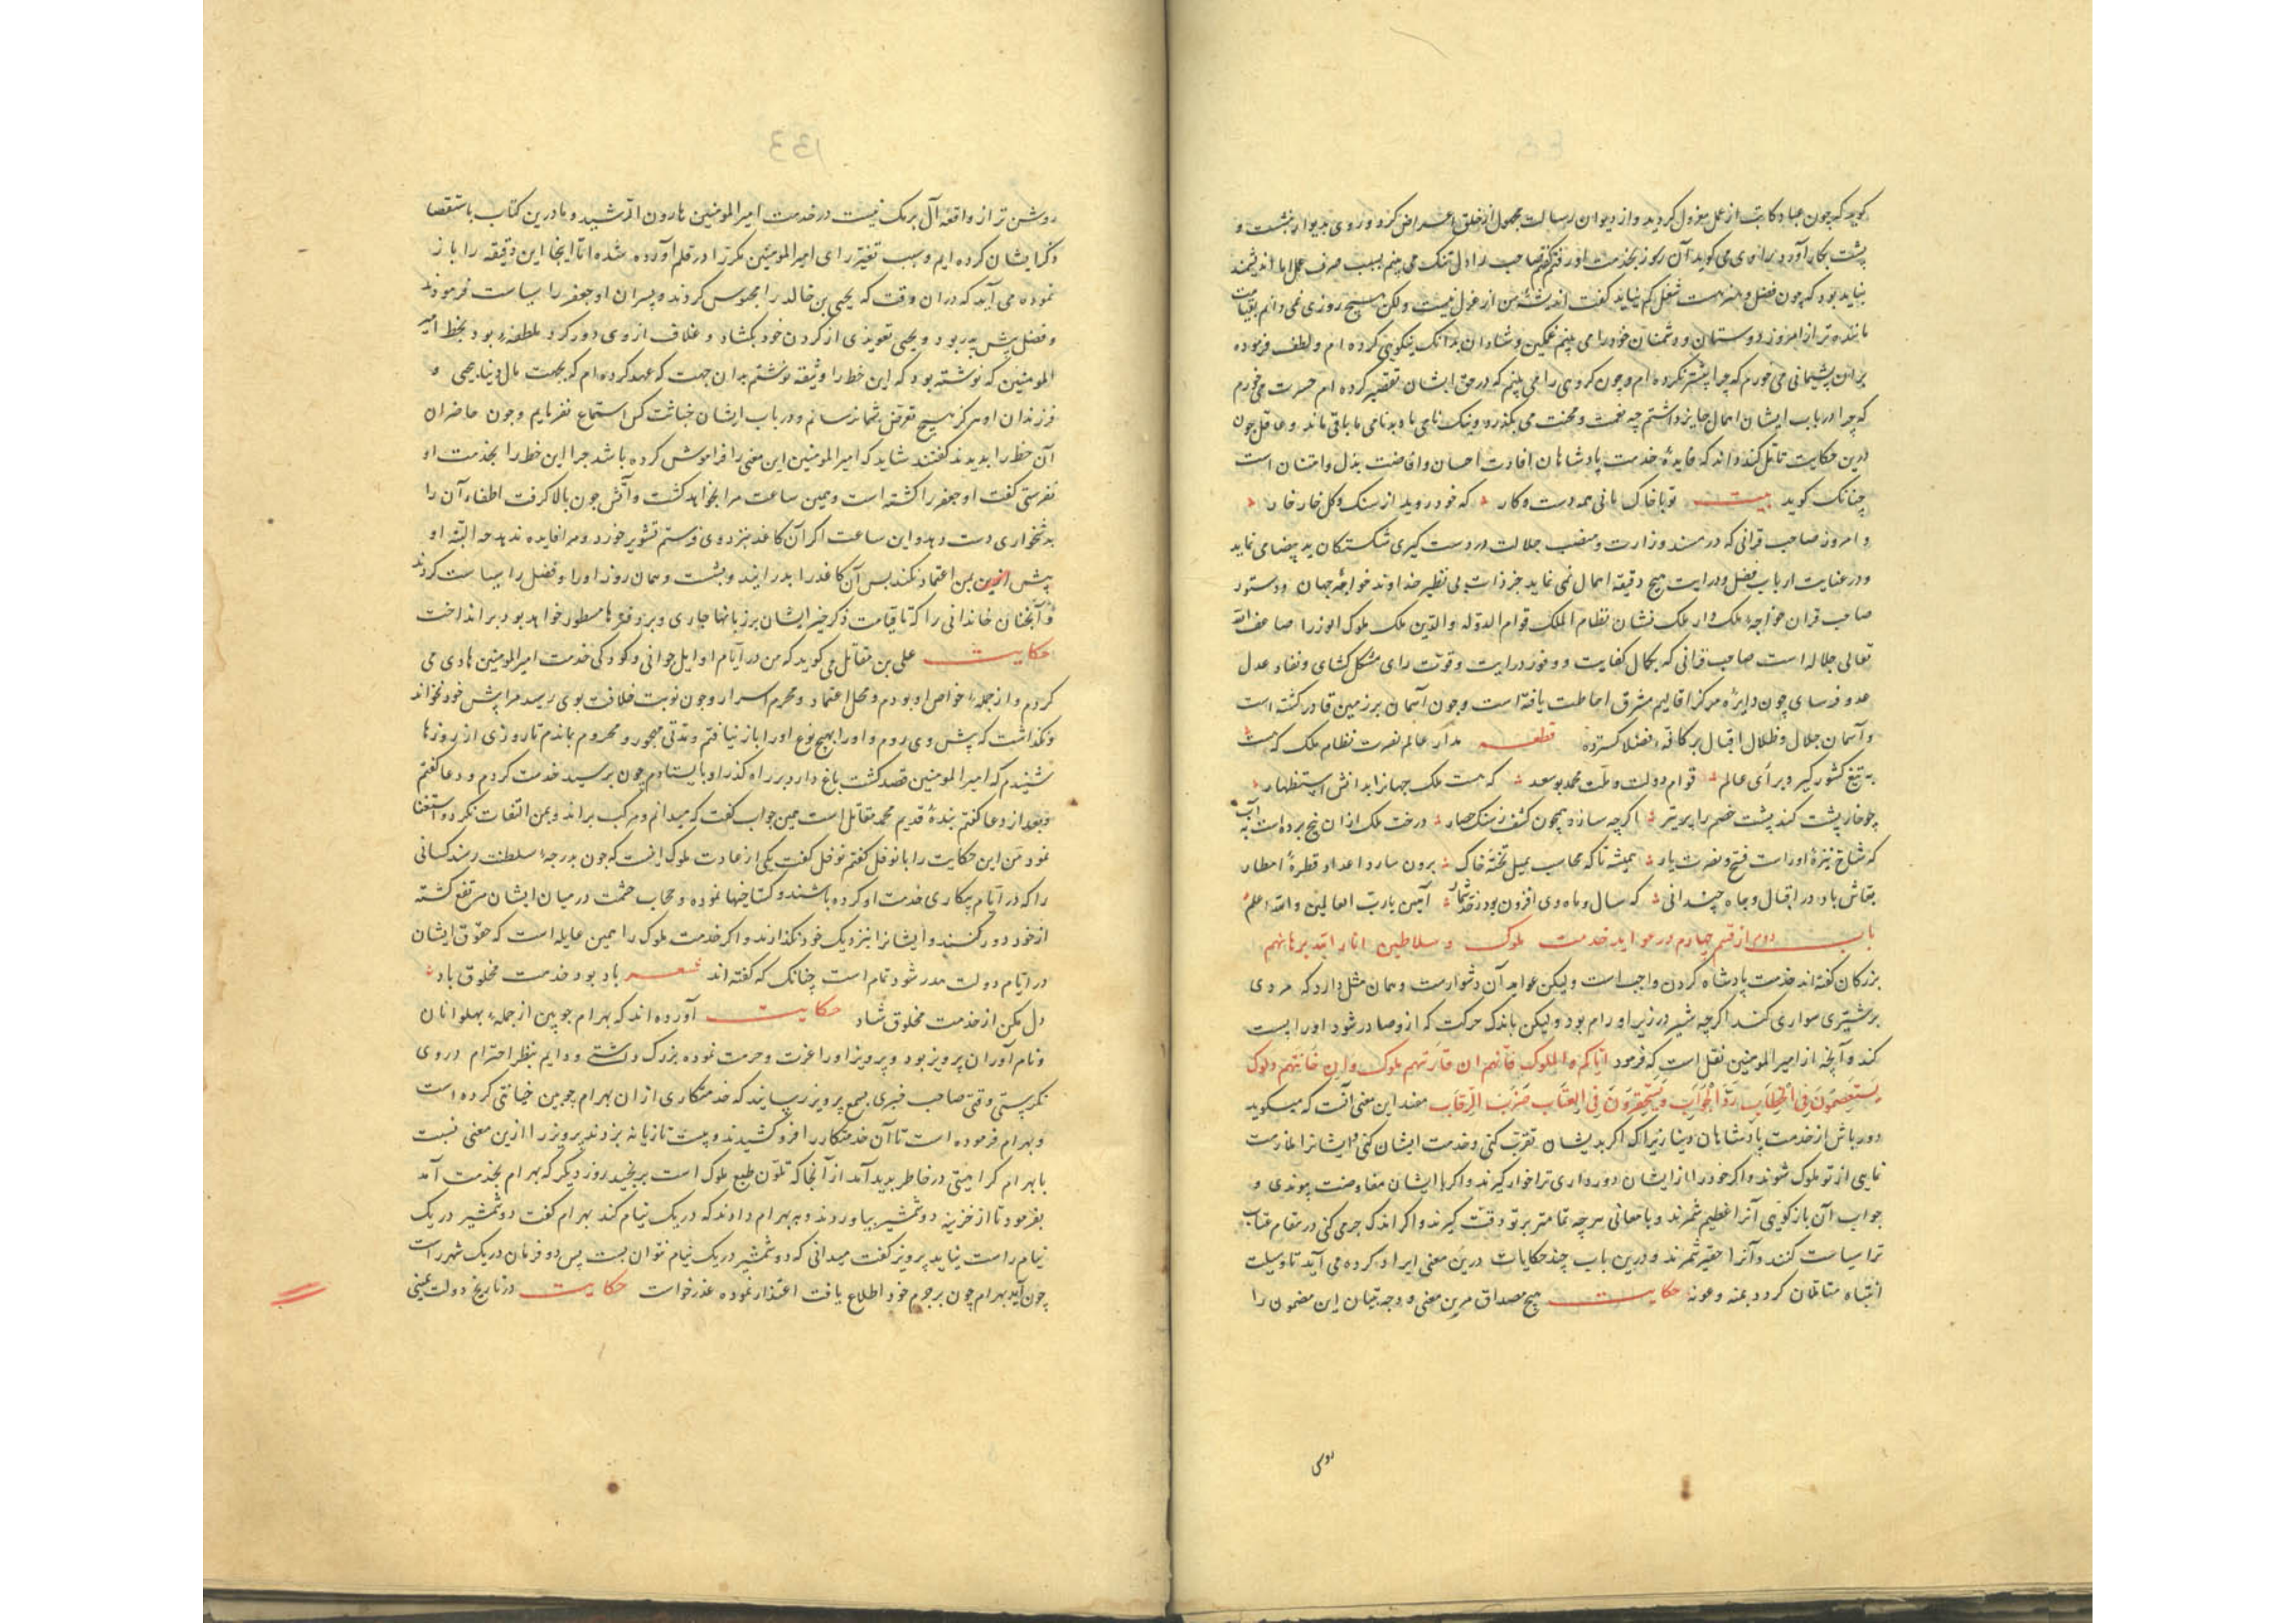 گوید که چون عباد کاتب از عمل معزول گردید و از دیوان رسالت محمول از خلق اعراض کرد و روی بدیوار بنشست و
پشت بکار آورد راوی می گوید آن روز بخدمت او رفتم گفتم صاحب را دل تنک می بینم بسبب صرف عمل اما اندیشمند
نباید بود که چون فضل و هنر هست شغل کم نیاید گفت اندیشهٔ من از عزل نیست ولکن هیچ روزی نمی دانم بقیامت
ماننده تر از امروز دوستان و دشمنان خود را می بینم غمگین و شادان بدانک نیکویی کرده ام و لطف فرموده
بران پشیمانی می خورم که چرا بیشتر نکرده ام و چون گروهی را می بینم که در حق ایشان تقصیر کرده ام حسرت می خورم
که چرا در باب ایشان اهمال جایز داشتم چه نعمت و محنت می بگذرد و نیک نامی ما و بدنامی ما باقی ماند و عاقل چون
درین حکایت تامل کند داند که فایدهٔ خدمت پادشاهان افادت احسان و افاضت بذل و امتنان است
چنانک گوید بیت تو با خاک بانی همه دست و کار که خود روید از سنک و گل خار خار
و امروز صاحب قرانی که در مسند وزارت و منصب جلالت در دست گیری شکستگان ید بیضا می نماید
و در عنایت ارباب فضل و درایت هیچ دقیقه اهمال نمی نماید جز ذات بی نظیر خداوند خواجهٔ جهان دستور
صاحب قران خواجهٔ ملک دار ملک نشان نظام الملک قوام الدوله و الدین ملک ملوک الوزرا ضاعف الله
تعالی جلاله است صاحب قرانی که بکمال کفایت و وفور درایت و قوت رای مشکل کشای و نفاد عدل
عدو فرسای چون دایره مرکز اقالیم مشرق احاطت یافته است و چون آسمان بر زمین قادر گشته است
و آسمان جلال و ظلال اقبال بر کافهٔ فضلا گسترده قطعه مدار عالم نصرت نظام ملک که هست
به تیغ کشور گیر و برای عالم قوام دولت و ملت محمد بوسعد که هست ملک جهانرا بدانش استظهار
چو خار پشت کند پشت خصم را پر تیر اگر چه سازد همچون کشف ز سنک حصار درخت ملک ازان بیخ برده است به آب
که شاخ نیزهٔ اوراست فتح و نصرت یار همیشه تا که محاسب بمیل تختهٔ خاک برون نیارد اعداد قطرهٔ امطار
بقاش باد در اقبال و جاه چندانی که سال و ماه وی افزون بود ز حد شمار آمین یا رب العالمین والله اعلم
باب دوم از قسم چهارم در عواید خدمت ملوک و سلاطین انار الله برهانهم
بزرگان گفته اند خدمت پادشاه کردن واجب است ولیکن عواید آن دشوارست و همان مثل دارد که مردی
بر شیری سواری کند اگر چه شیر در زیر او رام بود ولیکن باندک حرکت که ازو صادر شود او را پست
کند و آنچه از امیر المومنین نقل است که فرمود ایاکم و الملوک فانهم ان قارنتهم ملوک وان خانتهم
یستعصمون فی الخطاب رد الجواب و یستحقرون فی العتاب ضرب الرقاب مفید این معنی آنست که میگوید
دور باش از خدمت پادشاهان دنیا زیرا که اگر بدیشان تقرب کنی و خدمت ایشان کنی و ایشانرا ملازمت
نمایی از تو ملوک شوند و اگر خود را از ایشان دور داری ترا خوار گیرند و اگر با ایشان مفاوضت پیوندی و
جواب آن باز گویی آنرا عظیم شمرند و با معانی هر چه تمامتر بر تو دقت گیرند و اگر اندک جرمی کنی در مقام عتاب
ترا سیاست کنند و آنرا حقیر شمرند و درین باب چند حکایات درین معنی ایراد کرده می آید تا وسیلت
انتباه متاملان گردد بمنه و عونه حکایت هیچ مصداق مرین معنی و وجه تبیان این مضمون را
روشن
133
روشن تر از واقعهٔ آل برمک نیست در خدمت امیر المومنین هارون الرشید و ما درین کتاب باستقصا
ذکر ایشان کرده ایم و سبب تغیر رای امیر المومنین مکرر در قلم آورده شده اما اینجا این دقیقه را باز
نموده می آید که دران وقت که یحیی بن خالد را محبوس کردند و پسران او جعفر را سیاست فرمودند
و فضل پیش پدر بود و یحیی تعویذی از گردن خود بگشاد و غلاف از وی دور کرد ملطفهٔ بود بخط امیر
المومنین که نوشته بود که این خط را وثیقه نوشتم بدان جهت که عهد کرده ام که بجهت مال دنیا یحیی و
فرزندان او هرگز هیچ تعرض بشما نرسانم و در باب ایشان خباثت کس استماع نفرمایم و چون حاضران
آن خط را بدیدند گفتند شاید که امیر المومنین این معنی را فراموش کرده باشد چرا این خط را بخدمت او
نفرستی گفت او جعفر را کشته است و همین ساعت مرا بخواهد کشت و آتش چون بالا گرفت اطفاء آن را
بدشخواری دست دهد و این ساعت اگر آن کاغذ بنزد وی فرستم تشویر خورد و مرا فایده ندهد چه البته او
پیش ازین بمن اعتماد نکند پس آن کاغذ را بدرانید و بشست و همان روز او را و فضل را سیاست کردند
و آنچنان خاندانی را که تا قیامت ذکر خیر ایشان بر زبانها جاری و بر دفترها مسطور خواهد بود بر انداخت
حکایت علی بن مقاتل می گوید که من در ایام اوایل جوانی و کودکی خدمت امیر المومنین هادی می
کردم و از جملهٔ خواص او بودم و محل اعتماد و محرم اسرار و چون نوبت خلافت بوی رسید مرا پیش خود نخواند
و نگذاشت که پیش وی روم و او را بهیچ نوع او را باز نیافتم و مدتی مهجور و محروم بماندم تا روزی از روزها
شنیدم که امیر المومنین قصد گشت باغ دارد بر راه گذر او بایستادم چون برسید خدمت کردم و دعا گفتم
و بعد از دعا گفتم بندهٔ قدیم محمد مقاتل است همین جواب گفت که میدانم و مرکب براند و بمن التفات نکرد و استغنا
نمود من این حکایت را با نوفل گفتم نوفل گفت یکی از عادت ملوک اینست که چون بدرجهٔ سلطنت رسند کسانی
را که در ایام بیکاری خدمت او کرده باشند و گستاخیها نموده و حجاب حشمت در میان ایشان مرتفع گشته
از خود دور کنند و ایشانرا بنزدیک خود نگذارند و اگر خدمت ملوک را همین عایله است که حقوق ایشان
در ایام دولت هدر شود تمام است چنانک که گفته اند شعر باد بود خدمت مخلوق باد
دل مکن از خدمت مخلوق شاد حکایت آورده اند که بهرام چوبین از جملهٔ پهلوانان
و نام آوران پرویز بود و پرویز او را عزت و حرمت نموده بزرگ داشتی و دایم بنظر احترام در وی
نگریستی وقتی صاحب خبری بسمع پرویز رسانید که خدمتکاری از ان بهرام چوبین خیانتی کرده است
و بهرام فرموده است تا آن خدمتکار را فرو کشیدند و بیست تازیانه بزدند پرویز را ازین معنی نسبت
با بهرام کراهیتی در خاطر پدید آمد از آنجا که تلون طبع ملوک است برنجید روز دیگر که بهرام بخدمت آمد
بفرمود تا از خزینه دو شمشیر بیاوردند و ببهرام دادند که در یک نیام کند بهرام گفت دو شمشیر در یک
نیام راست نیاید پرویز گفت میدانی که دو شمشیر در یک نیام نتوان بست پس دو فرمان در یک شهر راست
چون آید بهرام چون بر جرم خود اطلاع یافت اعتذار نموده عذر خواست حکایت در تاریخ دولت یمینی